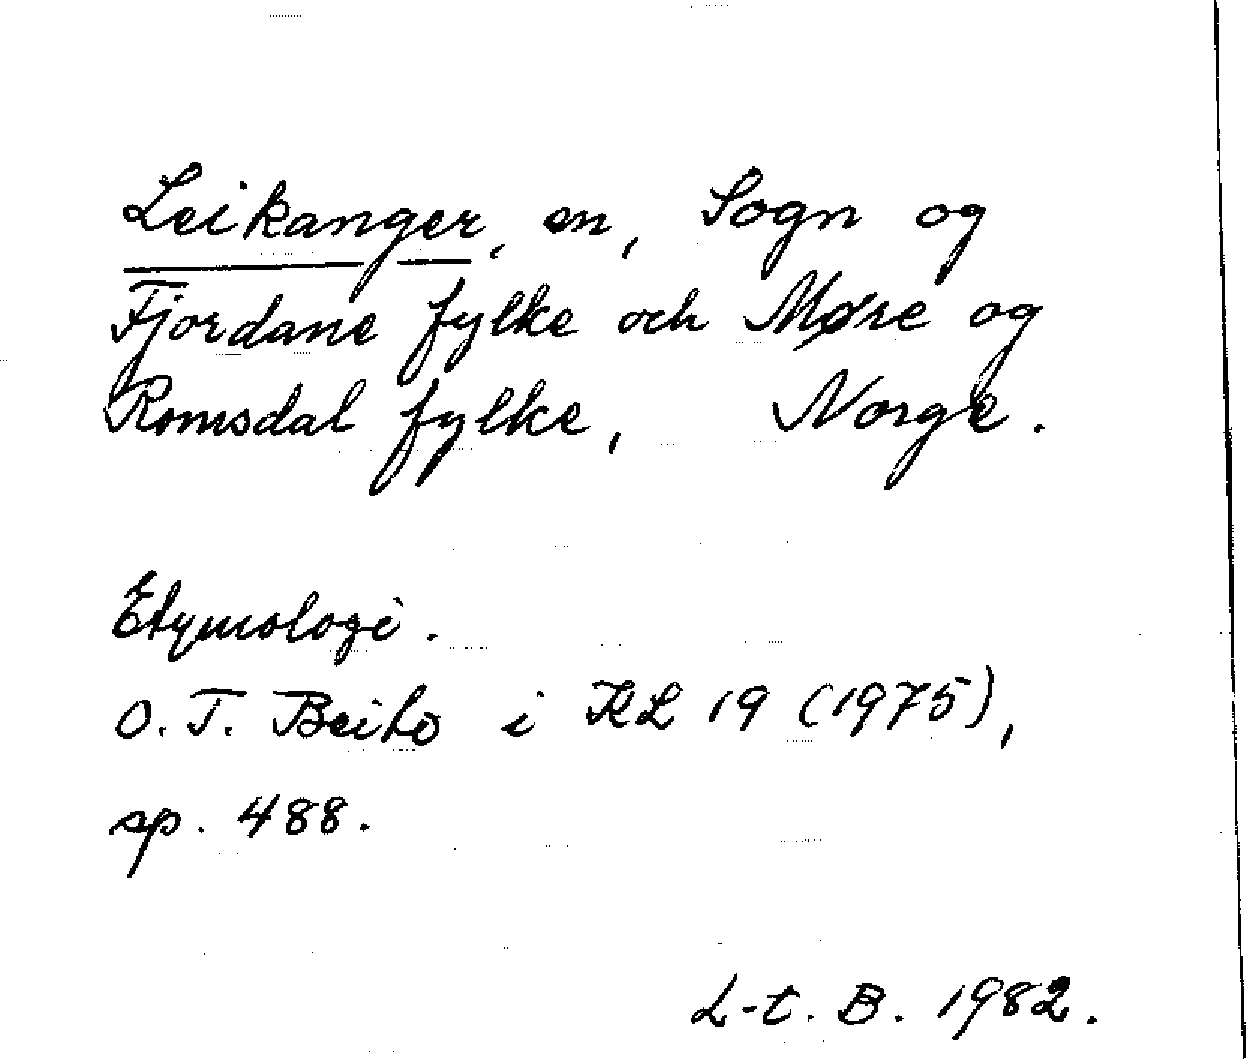 Leikanger, en, Sogn og
Fjordane fylke och Møre og
Romsdal fylke, Norge.
Etymologi.
O. T. Beito i KL 19 (1975),
sp. 488.
L-t. B. 1982.